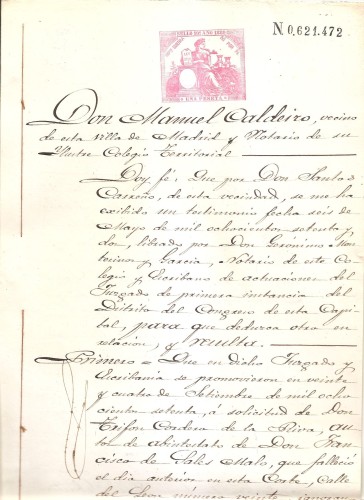 N 0.621.472
SELLO DE AÑO
UNA PESETA
Don Manuel Caldeiro, vecino
de esta villa de Madrid y Notario de su
Ilustre Colegio Territorial
Doy fé. Que por Don Santos
Carreño, de esta vecindad, se me ha
exibido un testimonio fecha seis de
Mayo de mil ochocientos setenta y
dos, librado por Don Gerónimo Mon-
terinos y García, Notario de este Co-
legio y Escribano de actuaciones del
Juzgado de primera instancia del
Distrito del Congreso de esta Capi-
tal, para que deduzca otro en
relación, y resulta.
Primero = Que en dicho Juzgado y
Escribania se promovieron en veinte
y cuatro de Setiembre de mil ocho
cientos setenta, á solicitud de Don
Trifon Cordera de la Riva, au
tos de abintestato de Don Fran
cisco de Sales Malo, que falleció
el dia anterior en esta Corte, Calle
del Leon número veinte